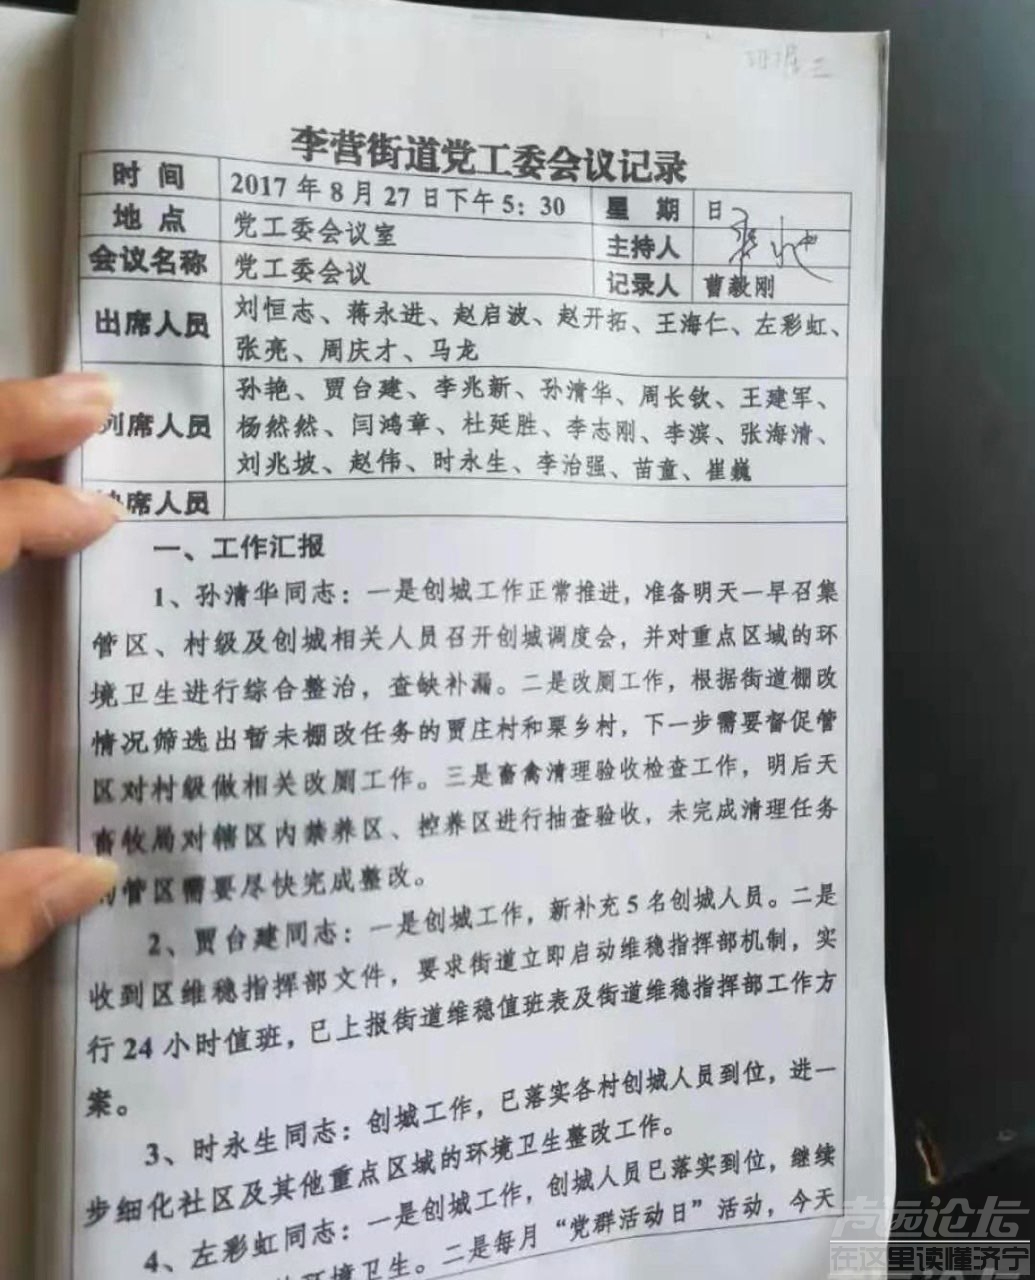 证据三
李营街道党工委会议记录
时 间 2017年8月27日下午5：30 星 期 日
地 点 党工委会议室 主持人
会议名称 党工委会议 记录人 曹毅刚
出席人员 刘恒志、蒋永进、赵启波、赵开拓、王海仁、左彩虹、
张亮、周庆才、马龙
列席人员 孙艳、贾台建、李兆新、孙清华、周长钦、王建军、
杨然然、闫鸿章、杜延胜、李志刚、李滨、张海清、
刘兆坡、赵伟、时永生、李治强、苗童、崔巍
席人员
一、工作汇报
1、孙清华同志：一是创城工作正常推进，准备明天一早召集
管区、村级及创城相关人员召开创城调度会，并对重点区域的环
境卫生进行综合整治，查缺补漏。二是改厕工作，根据街道棚改
情况筛选出暂未棚改任务的贾庄村和栗乡村，下一步需要督促管
区对村级做相关改厕工作。三是畜禽清理验收检查工作，明后天
畜牧局对辖区内禁养区、控养区进行抽查验收，未完成清理任务
的管区需要尽快完成整改。
2、贾台建同志：一是创城工作，新补充5名创城人员。二是
收到区维稳指挥部文件，要求街道立即启动维稳指挥部机制，实
行24小时值班，已上报街道维稳值班表及街道维稳指挥部工作方
案。
3、时永生同志：创城工作，已落实各村创城人员到位，进一
步细化社区及其他重点区域的环境卫生整改工作。
4、左彩虹同志：一是创城工作，创城人员已落实到位，继续
环境卫生。二是每月“党群活动日”活动，今天
声远论坛
在这里读懂济宁